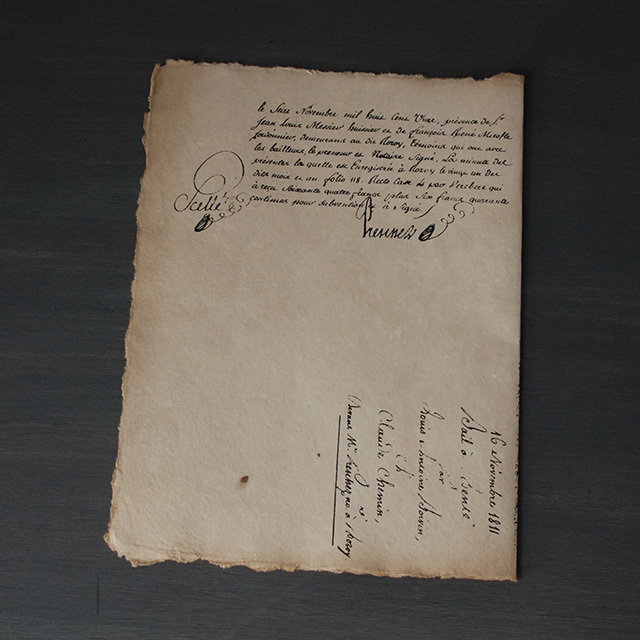 le Seize Novembre mil huit Cent Onze, présence de Sr
Jean Louis Messier huissier et de françois René
Cordonnier, demeurans au dit Rozoy, Témoins qui ont avec
les bailleurs, le preneur et Notaire Signé, La minute des
présentes la quelle est Enregistrée à Rozoy le vingt un des
dits mois et an folio 118. Recto Case 4 par
à reçu Soixante quatre francs plus Six francs quarante
centimes pour subvention et à Signé
Scellé
16 Novembre 1811
Bail à
Par
Louis Antoine
à
Claude Chemin,
Devant Me no. à Rozoy.